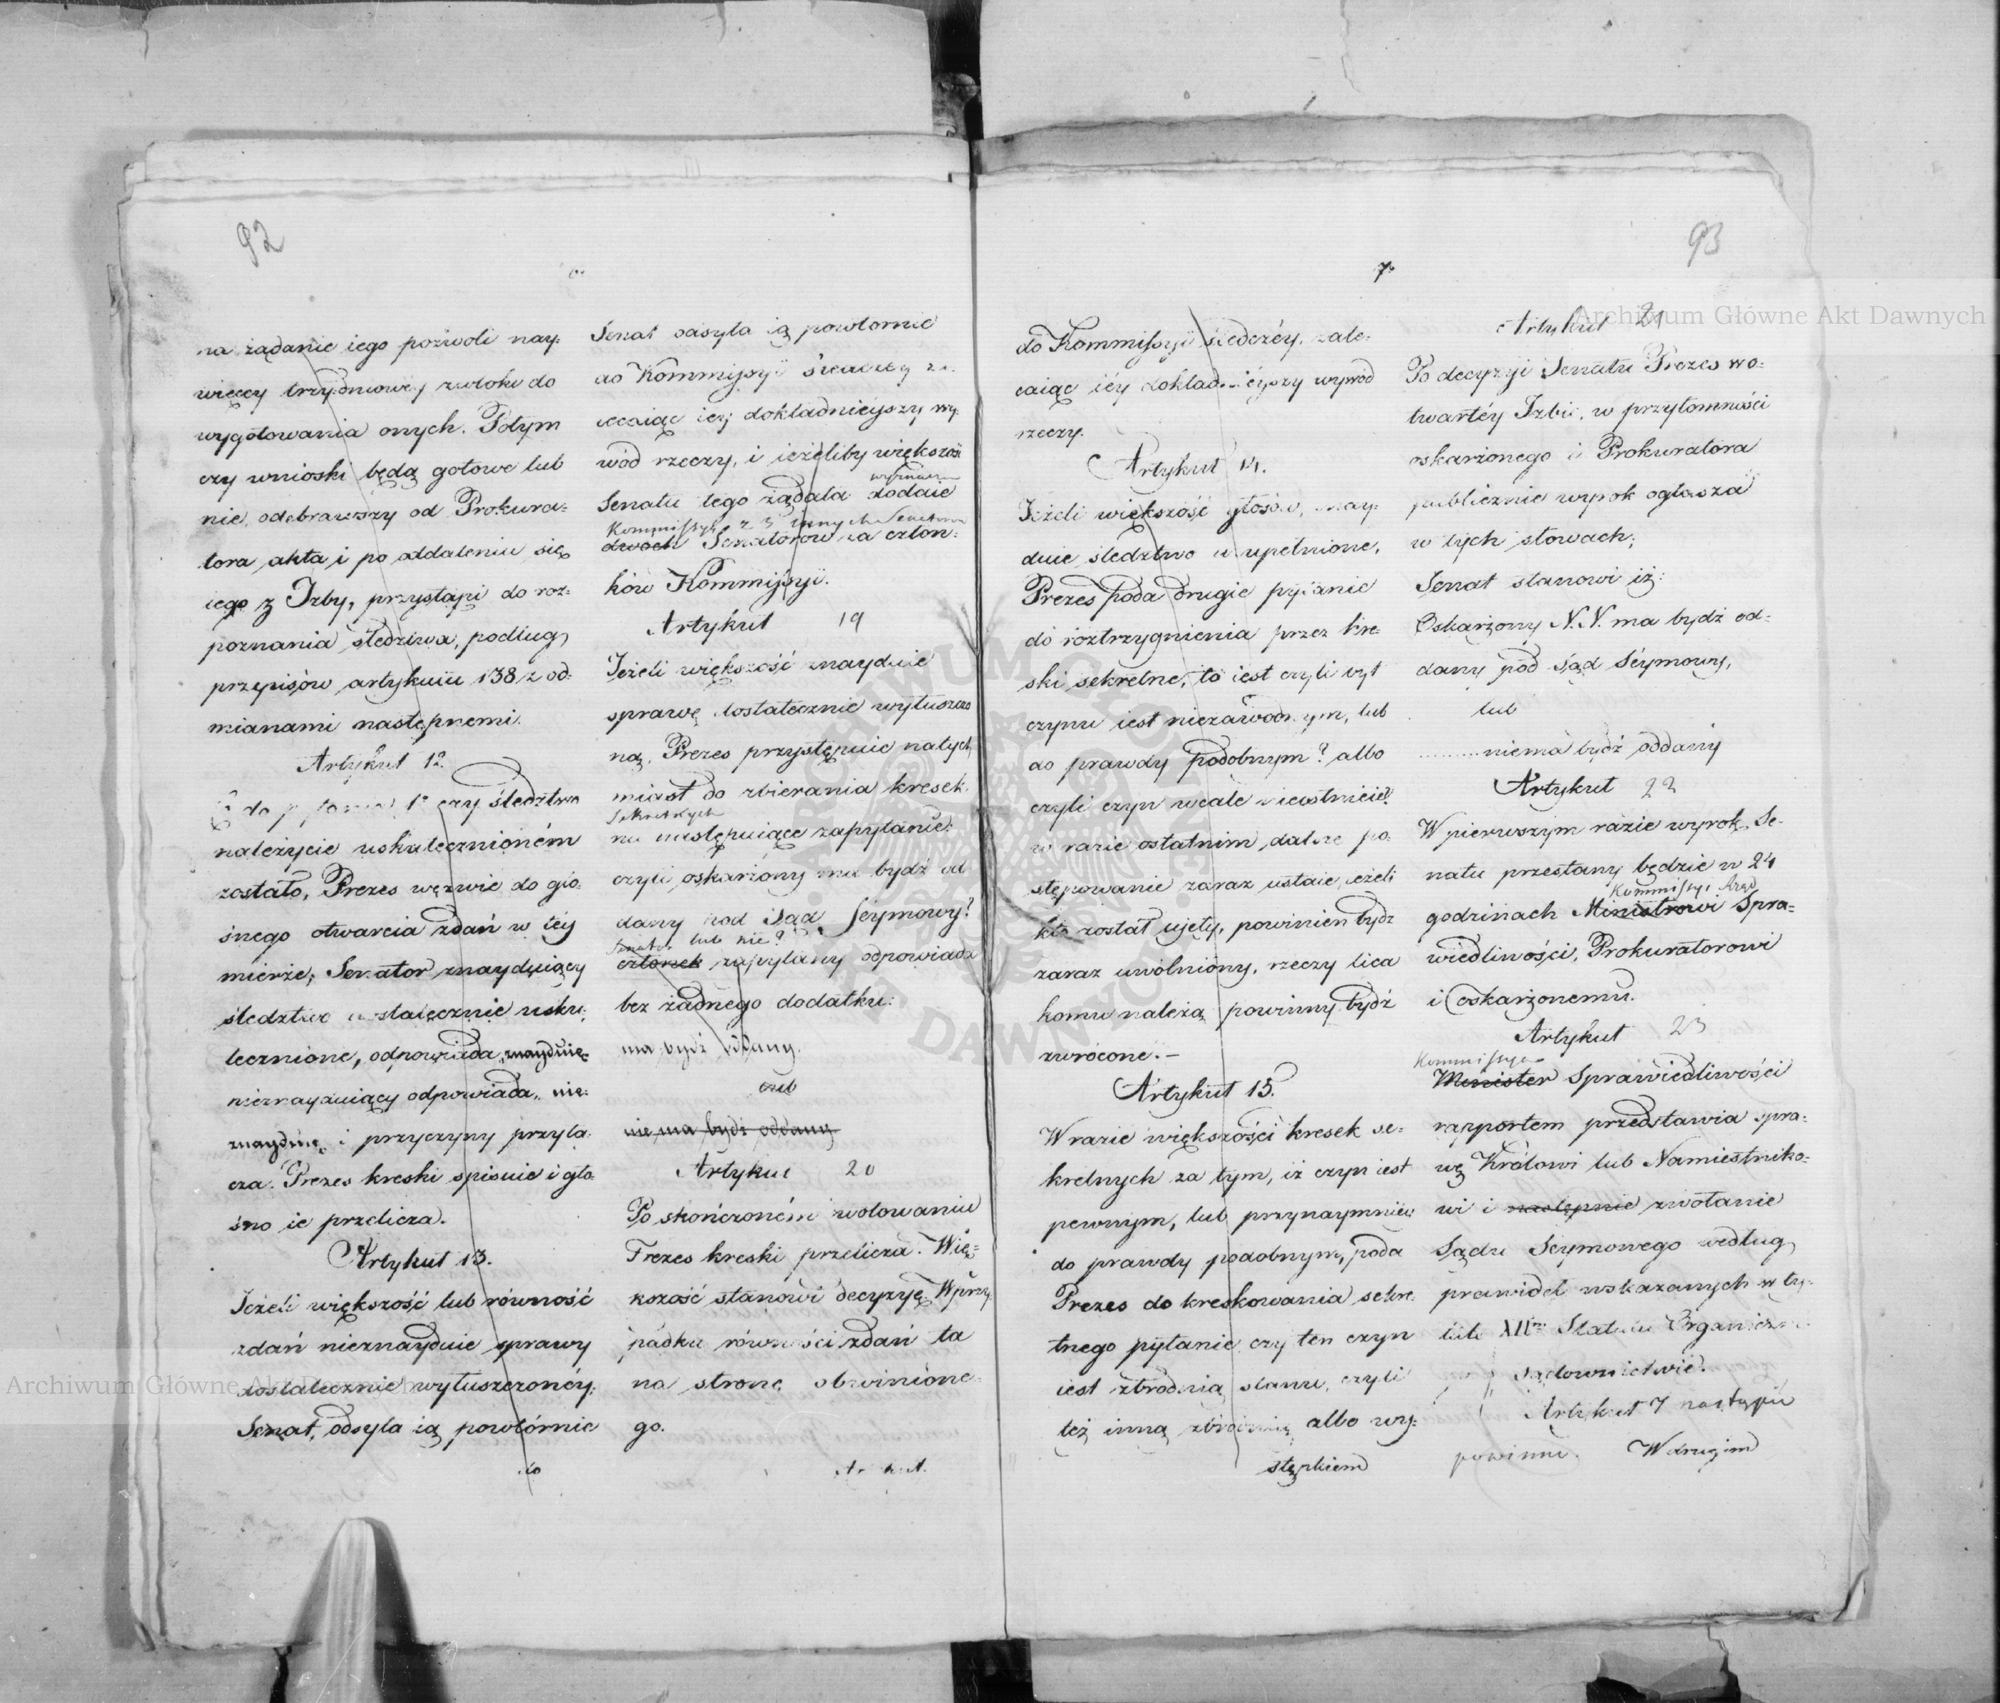 92
na żądanie iego pozwoli nay-
więcey trzydniowéy zwłoki do
wygotowania onych. Potym
czy wnioski będą gotowe lub
nie, odebrawszy od Prokura-
tora akta i po oddaleniu się
iego z Izby, przystąpi do roz-
poznania śledztwa, podług
przepisów artykułu 138 z od-
mianami następnemi.
Artykuł 12.
1e czy śledztwo
należycie uskutecznioném
zostało, Prezes wezwie do gło-
śnego otwarcia zdań w téy
mierze, Senator znayduiący
śledztwo dostatecznie usku-
tecznione, odpowiada „znayduię„
nieznayduiący odpowiada „nie-
znayduię„ i przyczyny przyta-
cza. Prezes kreski spisuie i gło-
śno ie przelicza.
Artykuł 13.
Jeżeli większość lub równość
zdań nieznayduie sprawy
dostatecznie wyłuszczonéy,
Senat, odsyła ią powtórnie
do
Senat odsyła ią powtornie
do Kommissyi śledczey za-
lecaiąc iey dokładnieyszy wy-
wód rzeczy, i ieżeliby większość
Senatu tego żądała dodaie
Kommissyi z 3 innych Senatorow
dwóch Senatorów za człon-
ków Kommissyi.
Artykuł 19
Jeżeli większość znayduie
sprawę dostatecznie wyłuszczo
ną, Prezes przystępuie natych
miast do zbierania kresek
sekretnych
na następuiące zapytanie:
czyli oskarżony ma bydź od
dany pod Sąd Seymowy?
Senator lub nie?
członek zapytany odpowiada
bez żadnego dodatku:
ma bydź oddany.
lub
nie ma bydź oddany
Artykuł 20
Po skończoném wotowaniu
Prezes kreski przelicza. Wię-
kszość stanowi decyzyę. W przy
padku równości zdań ta
na stronę obwinione-
go.
93
7.
do Kommissyi śledczéy, zale-
caiąc iéy dokładnieyszy wywód
rzeczy.
Artykuł 14.
Jeżeli większość głosów, znay-
duie śledztwo zupełnione,
Prezes poda drugie pytanie
do roztrzygnienia przez kre-
ski sekretne, to iest czyli byt
czynu iest niezawodnym, lub
do prawdy podobnym? albo
czyli czyn wcale nieistnieie?
w razie ostatnim, dalsze po-
stępowanie zaraz ustaie, ieżeli
kto został uięty, powinien bydź
zaraz uwolniony, rzeczy lica
komu należą powinny bydź
zwrócone.—
Artykuł 15.
W razie większości kresek se-
kretnych za tym, iż czyn iest
pewnym, lub przynaymniéy
do prawdy podobnym, poda
Prezes do kreskowania sekre-
tnego pytanie czy ten czyn
iest zbrodnią stanu, czyli
też inną zbrodnią albo wy-
stępkiem
Artykuł 21
Po decyzyi Senatu Prezes w o-
twartéy Izbie, w przytomności
oskarżonego i Prokuratora
publicznie wyrok ogłasza
w tych słowach;
Senat stanowi iż:
Oskarżony N.N. ma bydź od-
dany pod Sąd Séymowy,
lub
..........niema bydź oddany
Artykuł 22
W pierwszym razie wyrok Se-
natu przesłany będzie w 24
Kommissyi Rząd
godzinach Ministrowi Spra-
wiedliwości, Prokuratorowi
i oskarżonemu.
Artykuł 23
Kommissya
Minister Sprawiedliwości
rapportem przedstawia spra-
wę Królowi lub Namiestniko-
wi i następnie zwołanie
Sądu Seymowego według
prawideł wskazanych w ty-
tule XIIm Statutu Organiczn
Sądownictwie.
Artykuł 7 nastąpić
powinno. W drugim
Archiwum Główne Akt Dawnych
Archiwum Główne Akt Dawnych
ARCHIWUM GŁÓWNE AKT DAWNYCH